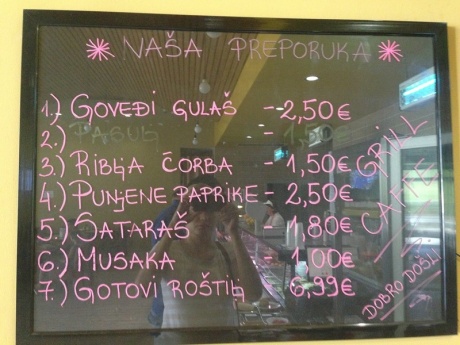 * NAŠA PREPORUKA *
1.) GOVEĐI GULAŠ - 2,50€
2.) PASULJ - 1,50€
3.) RIBLJA ČORBA - 1,50€
4.) PUNJENE PAPRIKE - 2,50€
5.) SATARAŠ - 1,80€
6.) MUSAKA - 1,00€
7.) GOTOVI ROŠTILJ 6,99€
CAFFE GRILL
DOBRO DOŠLI